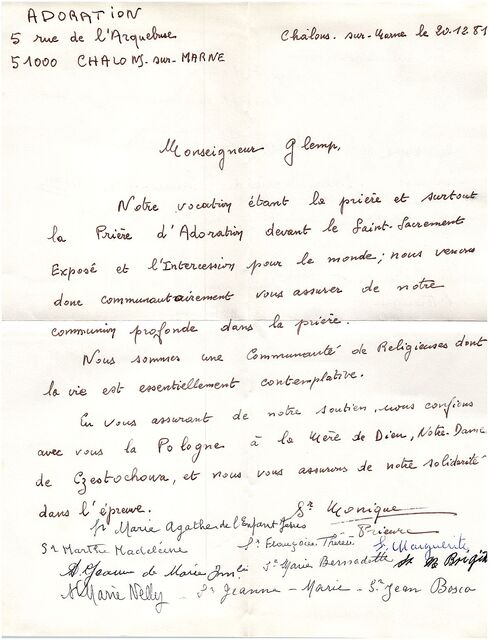 ADORATION
5 rue de l'Arquebuse
51000 CHALONS-sur-MARNE
Châlons-sur-Marne le 20.12.81
Monseigneur Glemp,
Notre vocation étant la prière et surtout
la Prière d'Adoration devant le Saint-Sacrement
Exposé et l'Intercession pour le monde; nous venons
donc communautairement vous assurer de notre
communion profonde dans la prière.
Nous sommes une Communauté de Religieuses dont
la vie est essentiellement contemplative.
En vous assurant de notre soutien, nous confions
avec vous la Pologne à la Mère de Dieu, Notre-Dame
de Czestochowa, et nous vous assurons de notre solidarité
dans l'épreuve.
Sr Monique
Prieure
Sr Marie Agathe de l'Enfant Jésus
Sr Marthe Madeleine Sr Françoise Thérèse Sr Marguerite
Sr Jeanne de Marie Sr Marie Bernadette Sr M Brigitte
Sr Marie Nelly - Sr Jeanne-Marie - Sr Jean Bosco